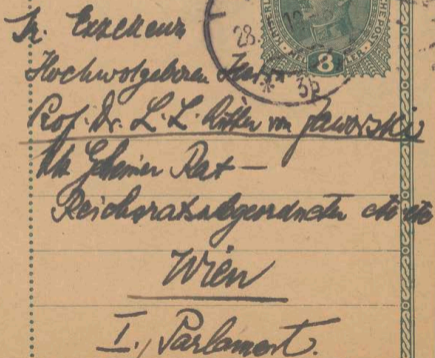 Sr. Exzellenz
Hochwolgeboren Herrn
Prof. Dr. L. L. Ritter von Jaworski
kk Geheimer Rat —
Reichsratsabgeordneter etc etc
Wien
I., Parlament.
8
28